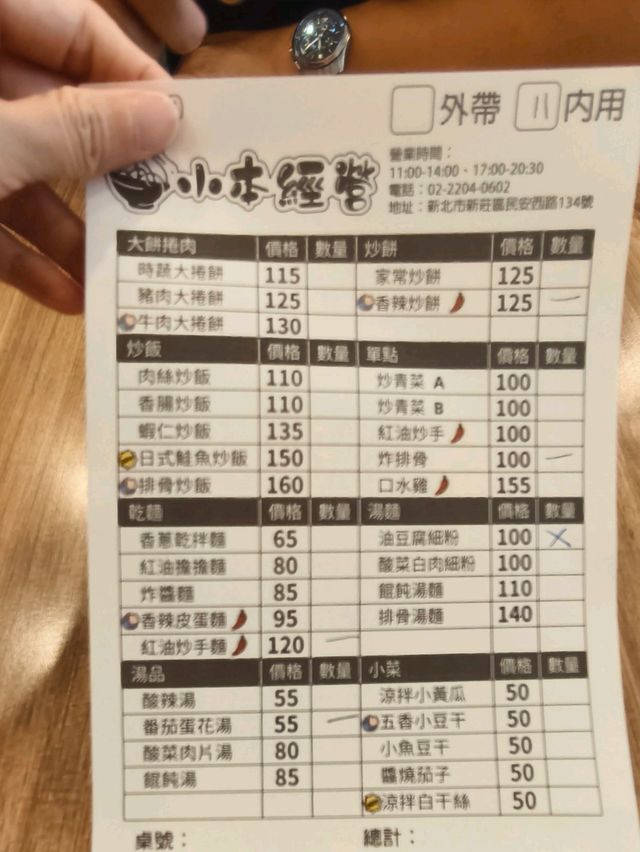 外帶 11 內用
小本經營
營業時間：
11:00-14:00、17:00-20:30
電話：02-2204-0602
地址：新北市新莊區民安西路134號
大餅捲肉 價格 數量 炒餅 價格 數量
時蔬大捲餅 115 家常炒餅 125
豬肉大捲餅 125 香辣炒餅 125 一
牛肉大捲餅 130
炒飯 價格 數量 單點 價格 數量
肉絲炒飯 110 炒青菜 A 100
香腸炒飯 110 炒青菜 B 100
蝦仁炒飯 135 紅油炒手 100
日式鮭魚炒飯 150 炸排骨 100 一
排骨炒飯 160 口水雞 155
乾麵 價格 數量 湯麵 價格 數量
香蔥乾拌麵 65 油豆腐細粉 100 X
紅油擔擔麵 80 酸菜白肉細粉 100
炸醬麵 85 餛飩湯麵 110
香辣皮蛋麵 95 排骨湯麵 140
紅油炒手麵 120 一
湯品 價格 數量 小菜 價格 數量
酸辣湯 55 涼拌小黃瓜 50
番茄蛋花湯 55 一 五香小豆干 50
酸菜肉片湯 80 小魚豆干 50
餛飩湯 85 醬燒茄子 50
涼拌白干絲 50
桌號： 總計：